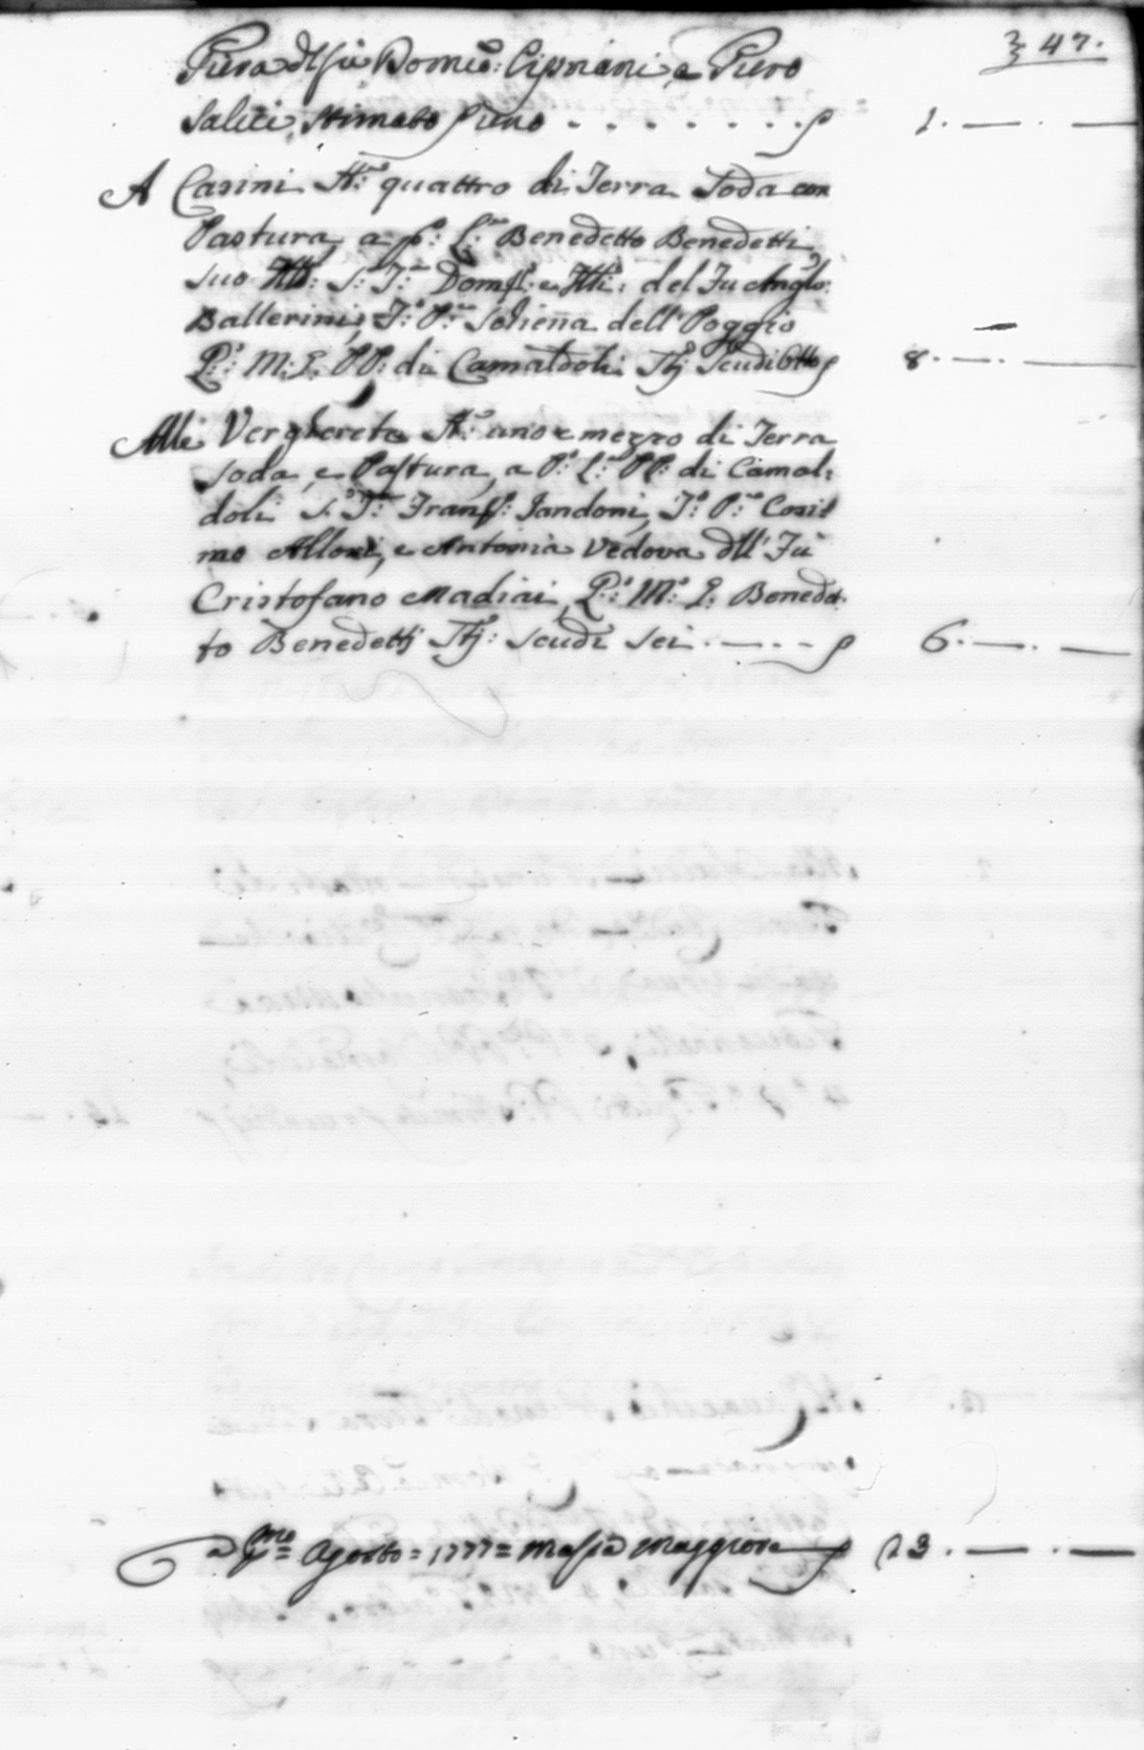 47.
Piera dl fù Domco: Cipriani, e Piero
Salici, Stimato ƒ uno . . . . . . . ƒ 1. — . —
A Casini St: quattro di Terra Soda con
Pastura, a po: L: Benedetto Benedetti
suo S: T: Dom: e del Fu Anglo:
Ballerini, T: P: Schiena dell' Poggio
P: M: L: PP: di Camaldoli Stj Scudi Otto ƒ 8. — . —
Alle Verghereta St: uno e mezzo di Terra
soda, e Pastura, a P: L: PP: di Camal:
doli S: T: Franso: Landoni, T: P: Cosi:
mo Alloni, e Antonia Vedova dll' Fù
Cristofano Madiai, P: M: L: Benedet:
to Benedetti Stj: scudi sei . — . - ƒ 6. — . —
a pmo = Agosto = 1777 = Massa Maggiore ƒ 13 . — . —